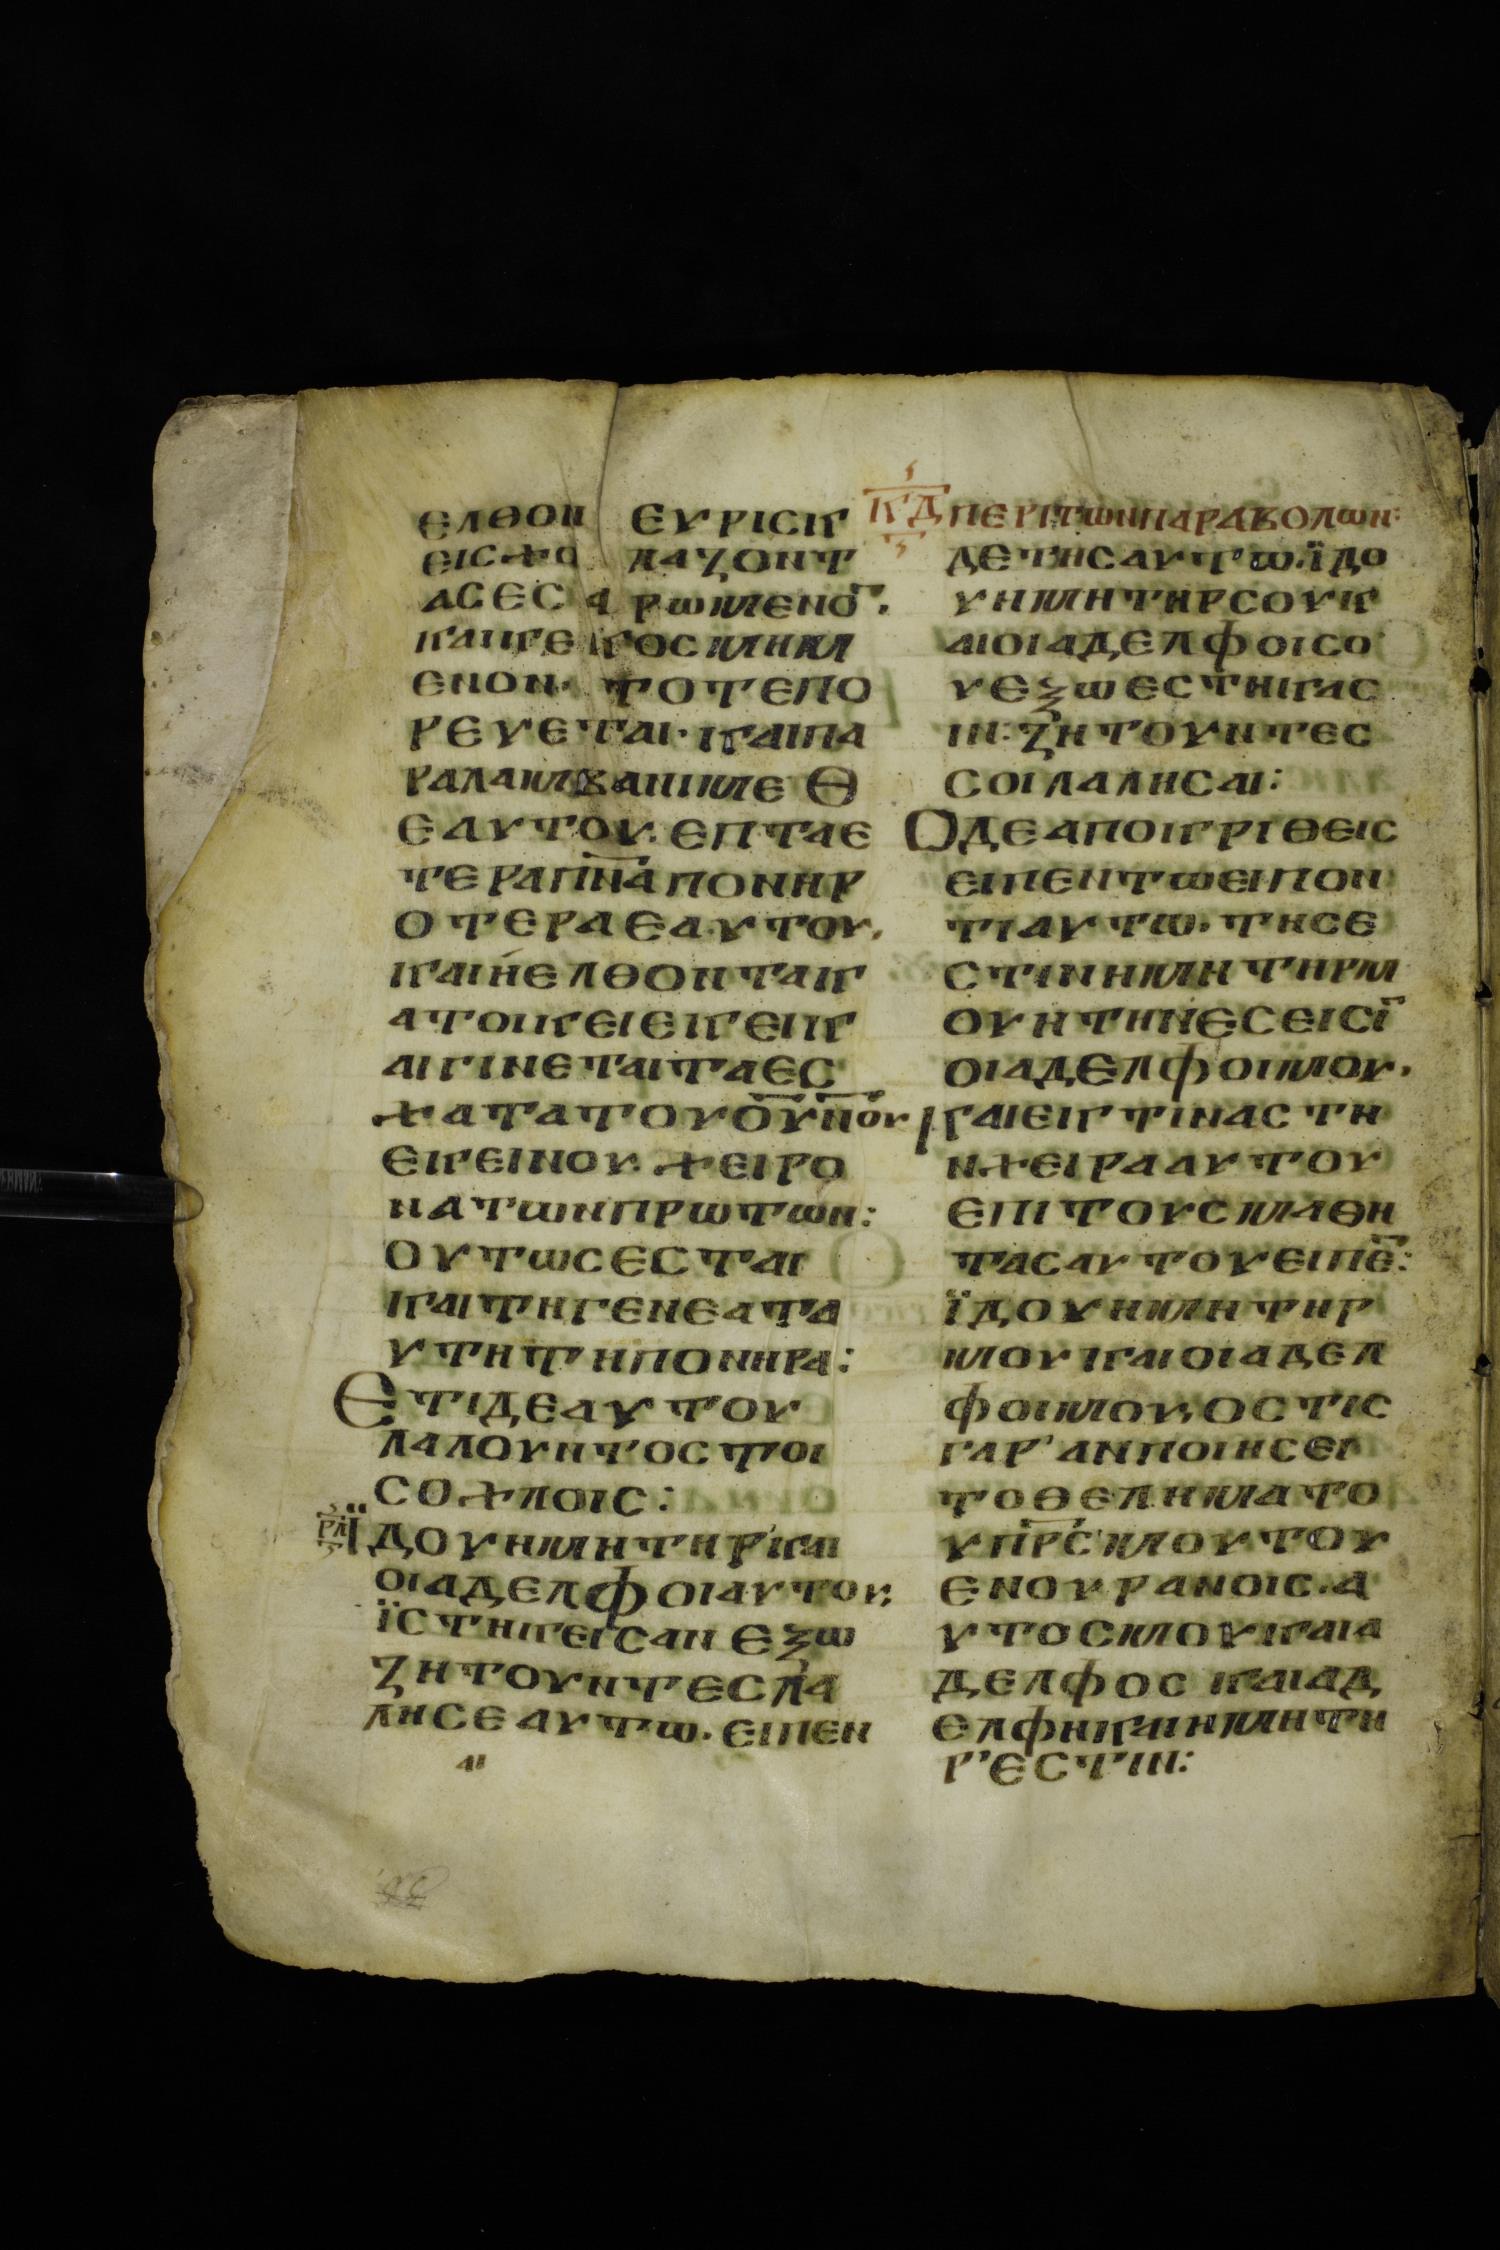 ΕΛΘΟΝ ΕΥΡΙСΚ
ΕΙСΧΟ ΛΑΖΟΝΤ
ΑСΕСΑΡΩΜΕΝΟ̅.
ΚΑΙΚΕΚΟСΜΗΜ
ΕΝΟΝ· ΤΟΤΕΠΟ
ΡΕΥΕΤΑΙ· ΚΑΙΠΑ
ΡΑΛΑΜΒΑΝΙΜΕΘ
ΕΑΥΤΟΥ. ΕΠΤΑΕ
ΤΕΡΑΠ̅Ν̅Α̅ΠΟΝΗΡ
ΟΤΕΡΑΕΑΥΤΟΥ.
ΚΑΙΗΕΛΘΟΝΤΑΚ
ΑΤΟΙΚΕΙΕΚΕΙΚ
ΑΙΓΙΝΕΤΑΙΤΑΕС
ΧΑΤΑΤΟΥΟ̅Υ̅Ν̅Ο̅Υ
ΕΚΕΙΝΟΥ. ΧΕΙΡΟ
ΝΑΤΩΝΠΡΩΤΩΝ:
ΟΥΤΩСΕСΤΑΙ
ΚΑΙΤΗΓΕΝΕΑΤΑ
ΥΤΗΤΗΠΟΝΗΡΑ:
ΕΤΙΔΕΑΥΤΟΥ
ΛΑΛΟΥΝΤΟСΤΟΙ
СΟΧΛΟΙС:
Ρ̅Λ̅ ΪΔΟΥΗΜΗΤΗΡ'ΚΑΙ
ΟΙΑΔΕΛΦΟΙΑΥΤΟΥ,
ΪСΤΗΚΕΙСΑΝΕΞΩ
ΖΗΤΟΥΝΤΕСΛΑ
ΛΗСΕΑΥΤΩ. ΕΙΠΕΝ
ΑΙ
Κ̅Δ̅ ΠΕΡΙΤΩΝΠΑΡΑΒΟΛΩΝ:
ΔΕΤΗСΑΥΤΩ. ΪΔΟ
ΥΗΜΗΤΗΡСΟΥΚ
ΑΙΟΙΑΔΕΛΦΟΙСΟ
ΥΕΞΩΕСΤΗΚΑС
ΙΝ: ΖΗΤΟΥΝΤΕС
СΟΙΛΑΛΗСΑΙ:
ΟΔΕΑΠΟΚΡΙΘΕΙС
ΕΙΠΕΝΤΩΕΙΠΟΝ
ΤΙΑΥΤΩ. ΤΗСΕ
СΤΙΝΗΜΗΤΗΡΜ
ΟΥΗΤΗΝΕСΕΙСΙ̅
ΟΙΑΔΕΛΦΟΙΜΟΥ.
ΚΑΙΕΚΤΙΝΑСΤΗ
ΝΧΕΙΡΑΑΥΤΟΥ
ΕΠΙΤΟΥСΜΑΘΗ
ΤΑСΑΥΤΟΥΕΙΠΕ̅:
ΪΔΟΥΗΜΗΤΗΡ
ΜΟΥΚΑΙΟΙΑΔΕΛ
ΦΟΙΜΟΥ, ΟСΤΙС
ΓΑΡ'ΑΝΠΟΙΗСΕΙ
ΤΟΘΕΛΗΜΑΤΟ
ΥΠ̅Ρ̅С̅ΜΟΥΤΟΥ
ΕΝΟΥΡΑΝΟΙС. Α
ΥΤΟСΜΟΥΚΑΙΑ
ΔΕΛΦΟСΚΑΙΑΔ
ΕΛΦΗΚΑΙΗΜΗΤΗ
Ρ'ΕСΤΙΝ: